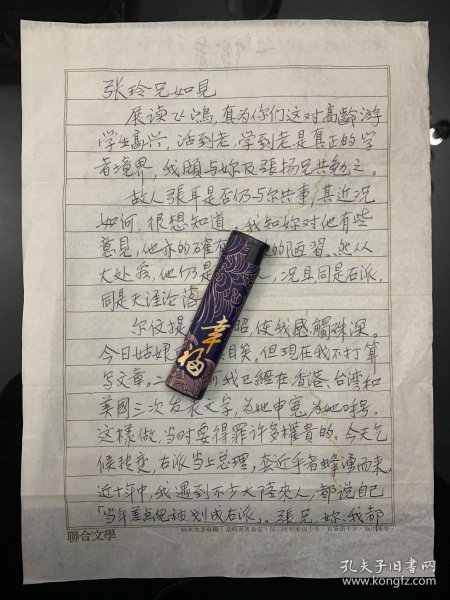 张玲兄如見
展读飞鴻，真为你们这对高齡游
学生高兴，活到老，学到老是真正的学
者境界，我願与妳及張揚兄共勉之。
故人張耳是否仍与尔共事，其近况
如何，很想知道。我知妳对他有些
意見，他亦的確有 的陋習。然从
大处看，他仍是 ，况且同是右派，
同是天涯沦落
尔伩提 昭，使我感觸殊深。
今日姑娘 目笑。但现在我不打算
写文章。 我已經在香港、台湾和
美國三次发表文字，为她申冤，为她呼号。
这樣做，当时要得罪许多權貴的。今天气
候转变，右派当上总理，套近乎者蜂湧而来。
近十年中，我遇到不少大陸来人，都说自己
「当年差点儿被划成右派」，張兄，妳、我都
聯合文學
幸福
孔夫子旧书网